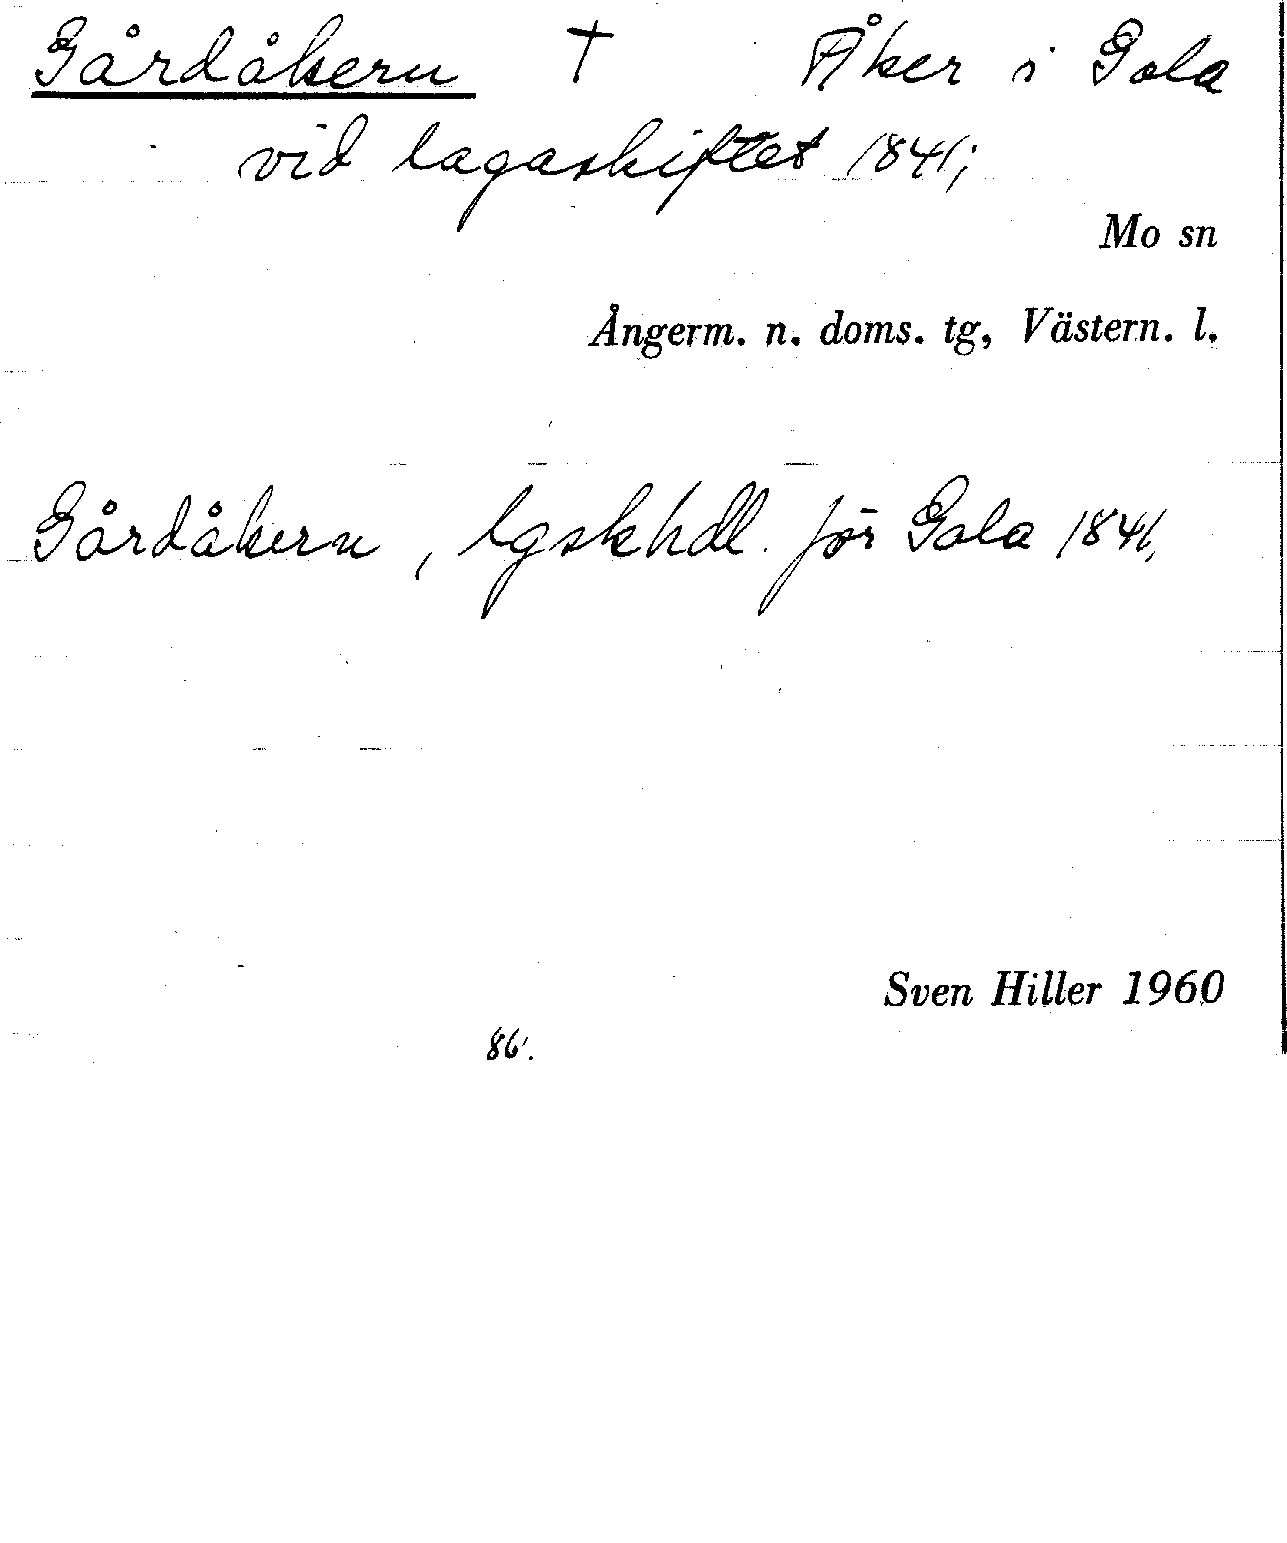 Gårdåkern † Åker i Gala
vid lagaskiftet 1841;
Mo sn
Ångerm. n. doms. tg, Västern. l.
Gårdåkern, lgskhdl. för Gala 1841,
Sven Hiller 1960
86.